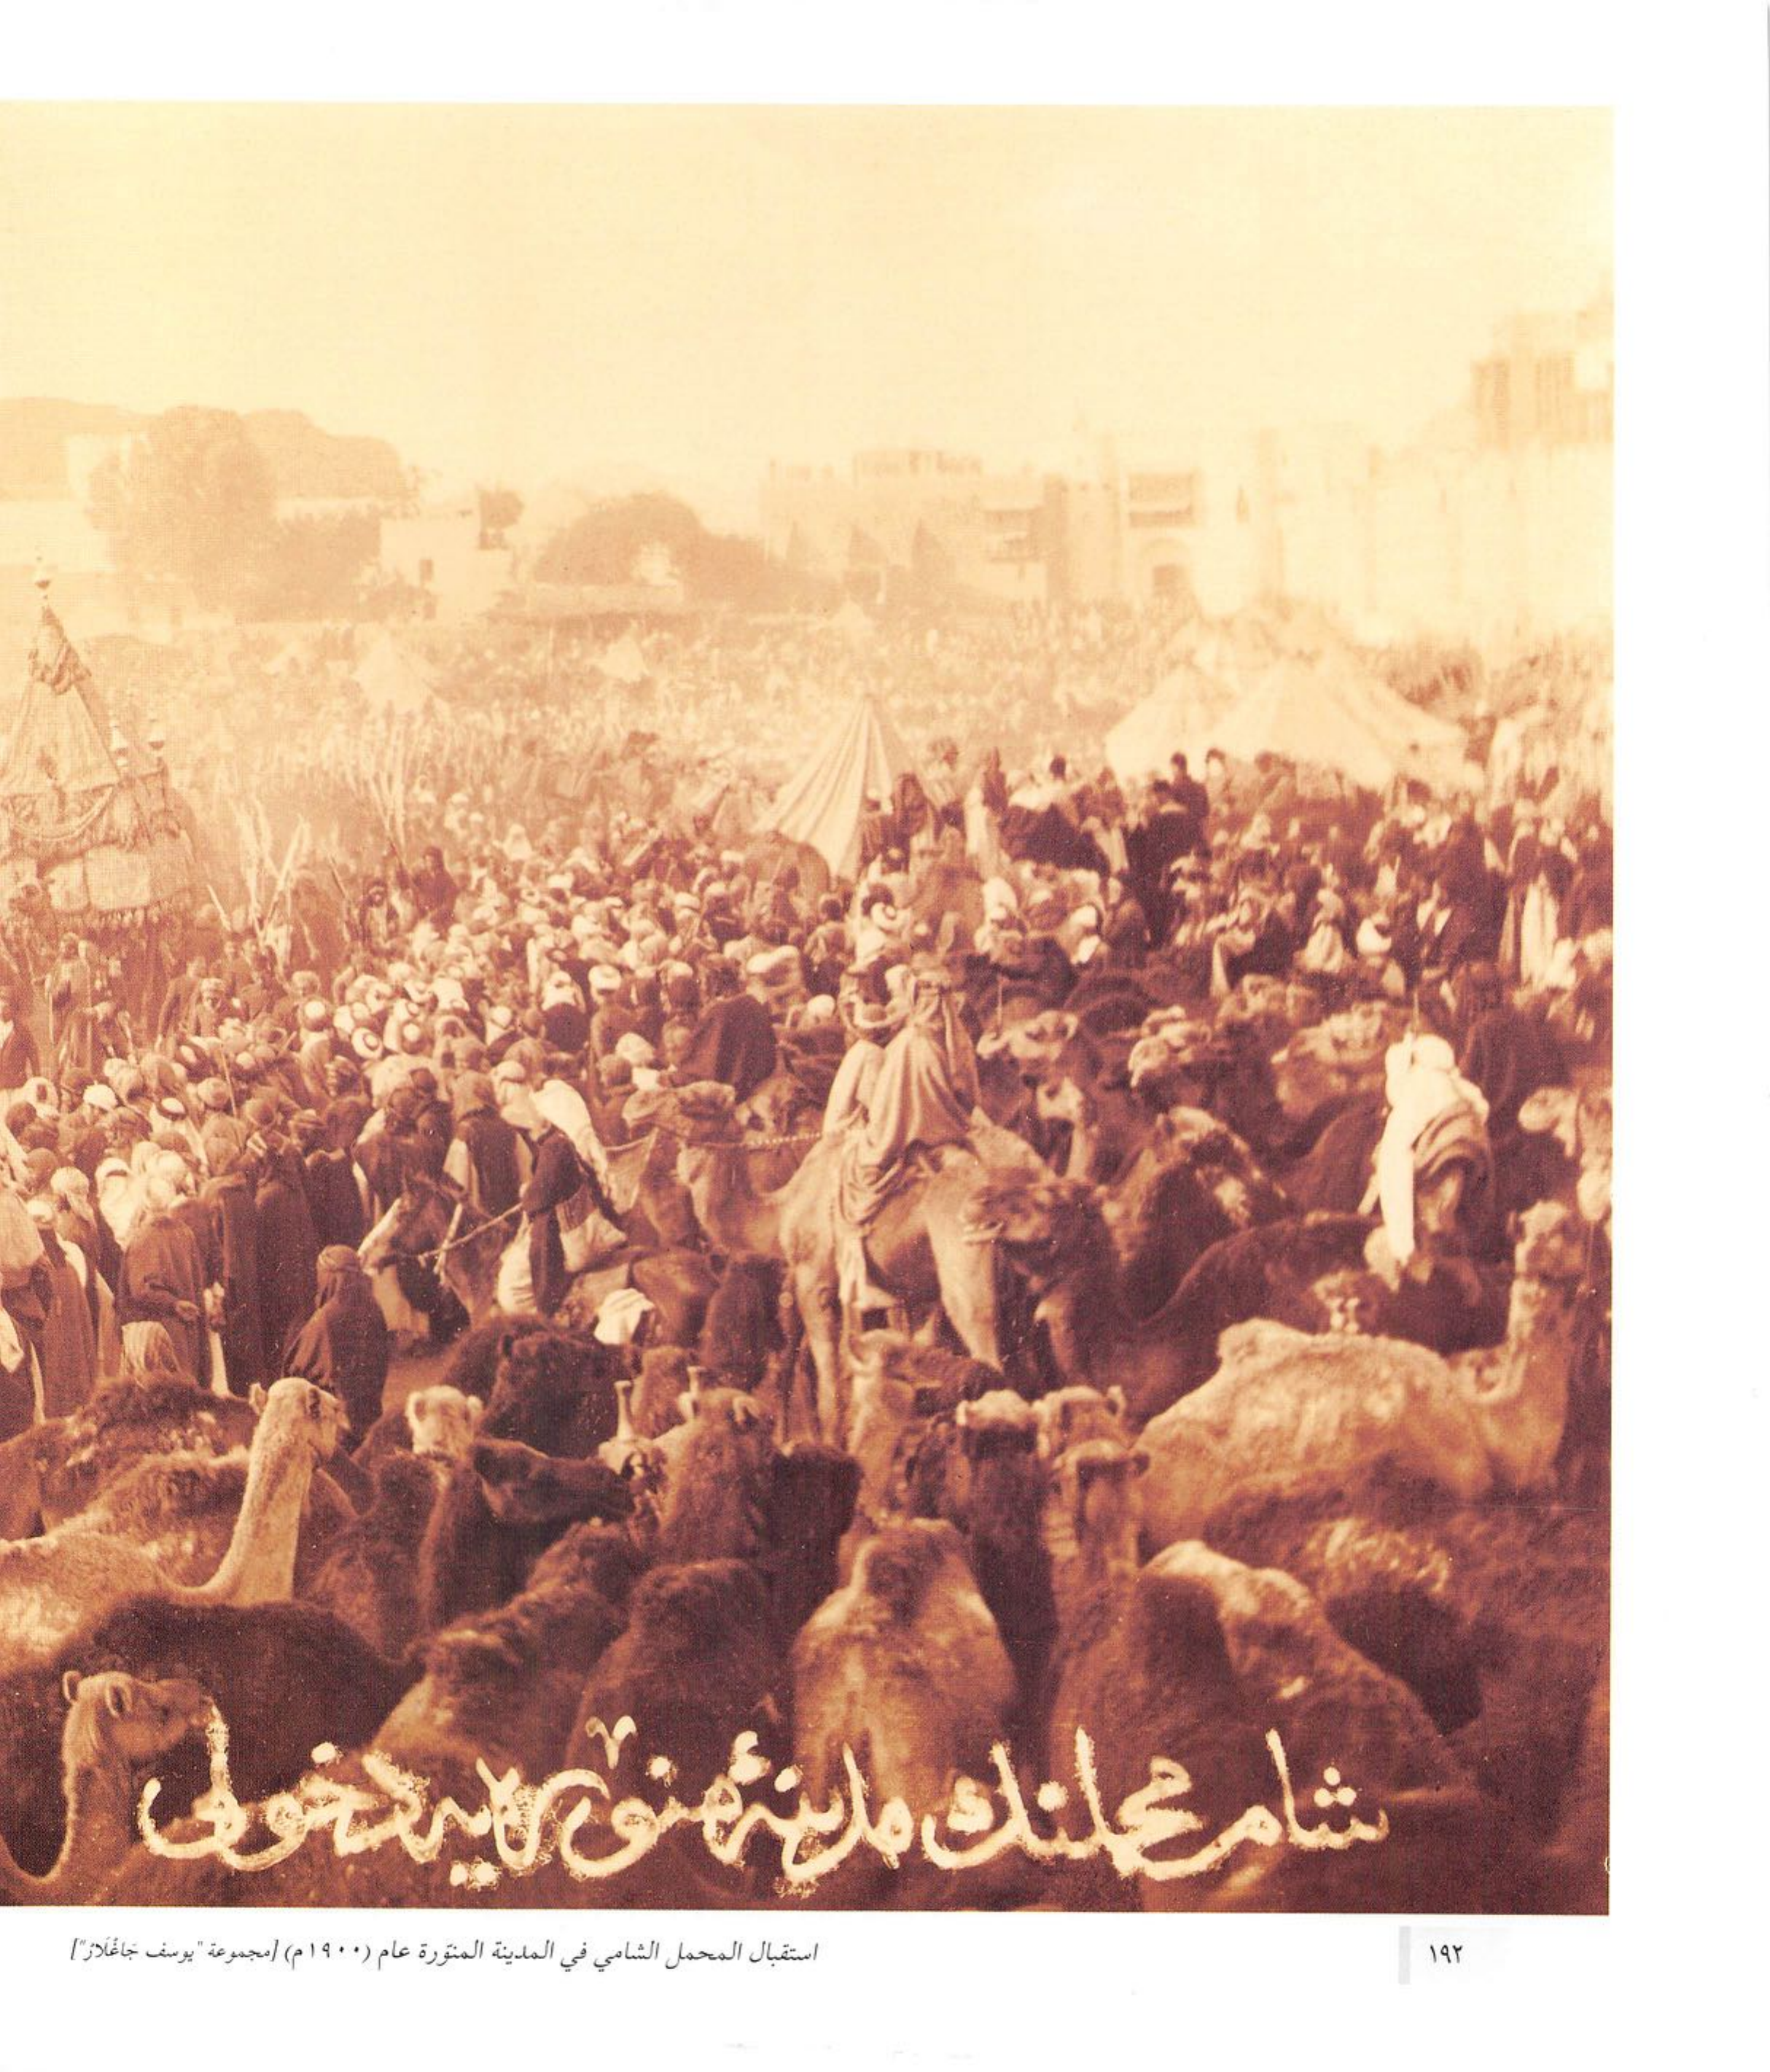 شام محملنك مدينۀ منوّرەيه دخولى
استقبال المحمل الشامي في المدينة المنوّرة عام (١٩٠٠م) [مجموعة "يوسف جَاغْلَارْ"]
١٩٢